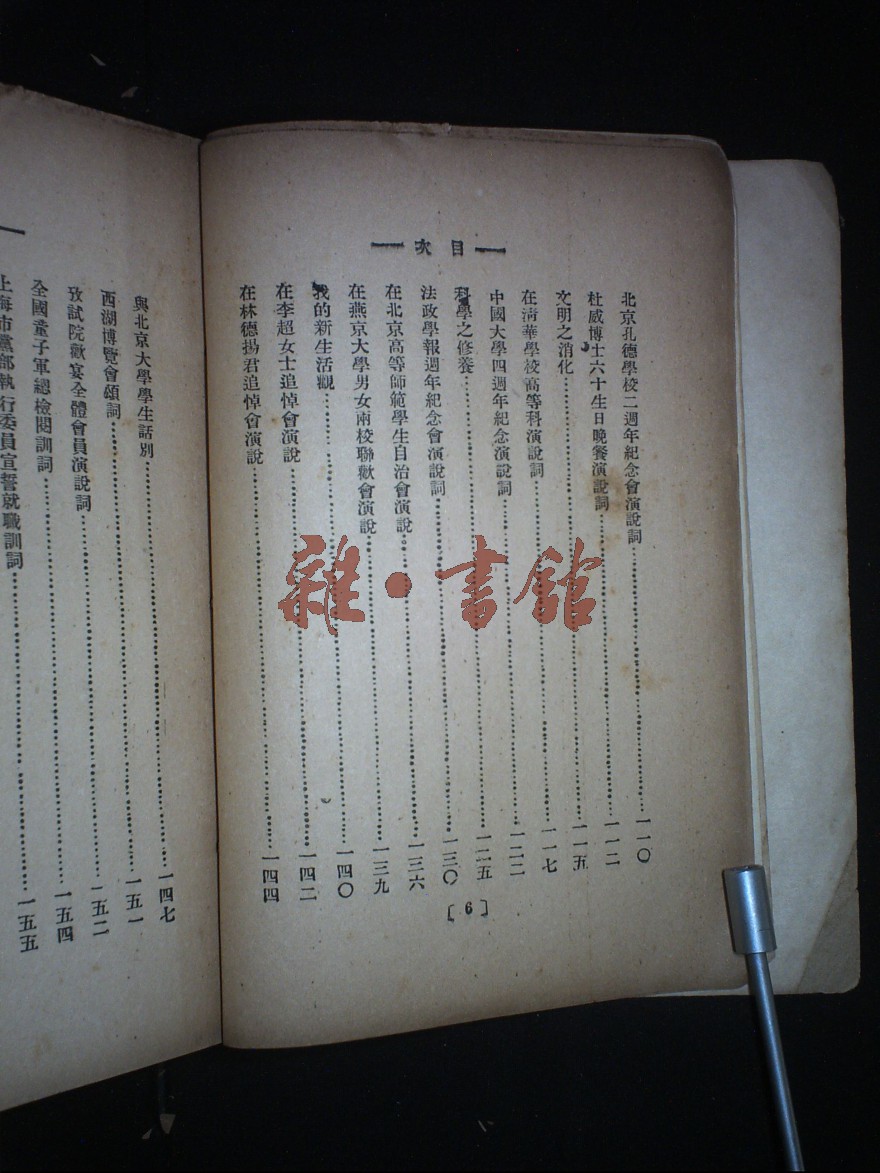 目次
北京孔德學校二週年紀念會演說詞 一一〇
杜威博士六十生日晚餐演說詞 一一二
文明之消化 一一五
在清華學校高等科演說詞 一一七
中國大學四週年紀念演說詞 一二二
科學之修養 一二五
法政學報週年紀念會演說詞 一三〇
在北京高等師範學生自治會演說 一三六
在燕京大學男女兩校聯歡會演說 一三九
我的新生活觀 一四〇
在李超女士追悼會演說 一四二
在林德揚君追悼會演說 一四四
〔6〕
與北京大學學生話別 一四七
西湖博覽會頌詞 一五一
攷試院歡宴全體會員演說詞 一五二
全國童子軍總檢閱訓詞 一五四
上海市黨部執行委員宣誓就職訓詞 一五五
雜·書館